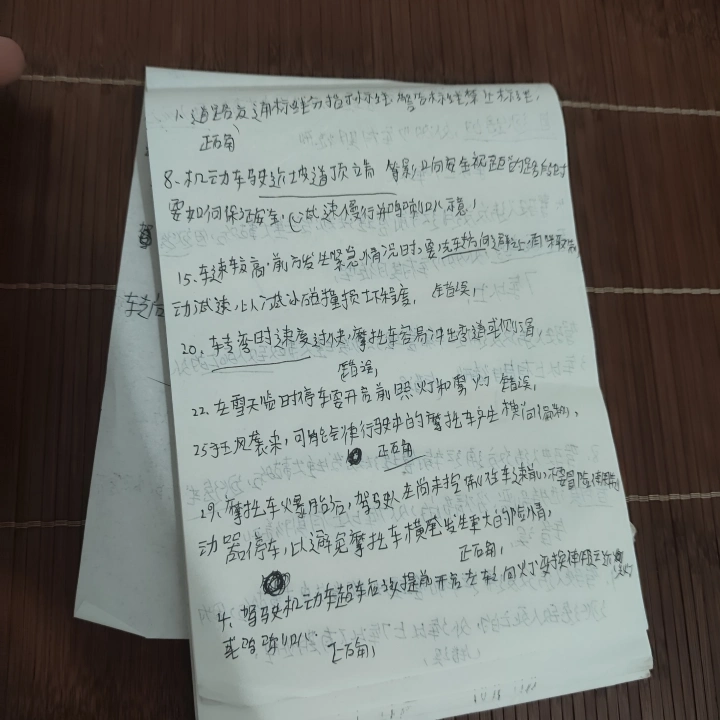 1、道路交通标线分指示标线、警告标线、禁止标线,
正确
8、机动车驶近坡道顶端 等影响安全视距的路段时
要如何保证安全,(减速慢行并鸣喇叭示意,
15、车速较高,前方发生紧急情况时,要先转方向 再采取制
动减速,以减小碰撞损坏程度, 错误,
20、转弯时速度过快,摩托车容易冲出弯道或侧滑,
错误,
22、在雪天临时停车要开启前照灯和雾灯 错误,
25 风袭来,可能会使行驶中的摩托车产生横向偏移,
正确
29、摩托车爆胎后,驾驶人在尚未控制住车速前,不要冒险使用制
动器停车,以避免摩托车横甩发生更大的险情,
正确,
4、驾驶机动车超车应该提前开启左转向灯变换使用远近光灯
或鸣喇叭
正确,